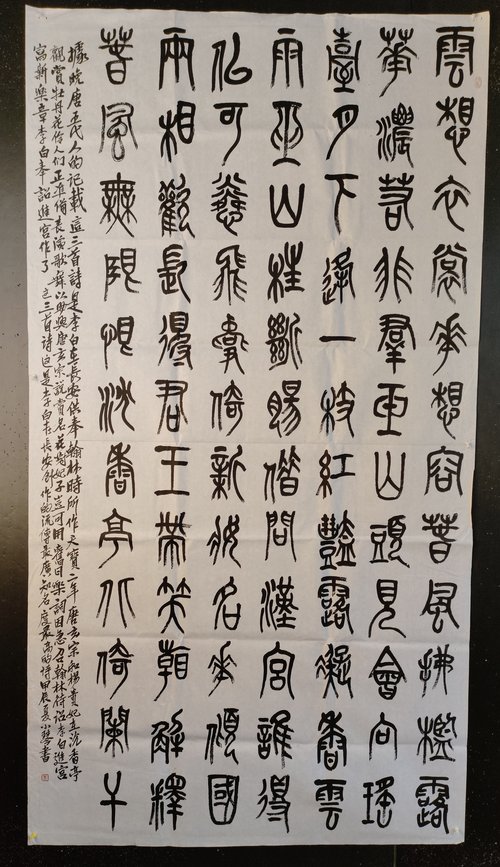 雲想衣裳花想容春風拂檻露
華濃若非群玉山頭見會向瑤
臺月下逢一枝紅豔露凝香雲
雨巫山枉斷腸借問漢宮誰得
似可憐飛燕倚新妝名花傾國
兩相歡長得君王帶笑看解釋
春風無限恨沈香亭北倚闌干
據晚唐五代人的記載這三首詩是李白在長安供奉翰林時所作天寶二年唐玄宗和楊貴妃在沈香亭
觀賞牡丹花伶人们正準備表演歌舞以助興唐玄宗說賞名花對妃子豈可用舊日樂詞因急召翰林待詔李白進宮
寫新樂章李白奉詔進宮作了这三首詩这是李白在長安创作的流傳最廣知名度最高的詩甲辰夏小書